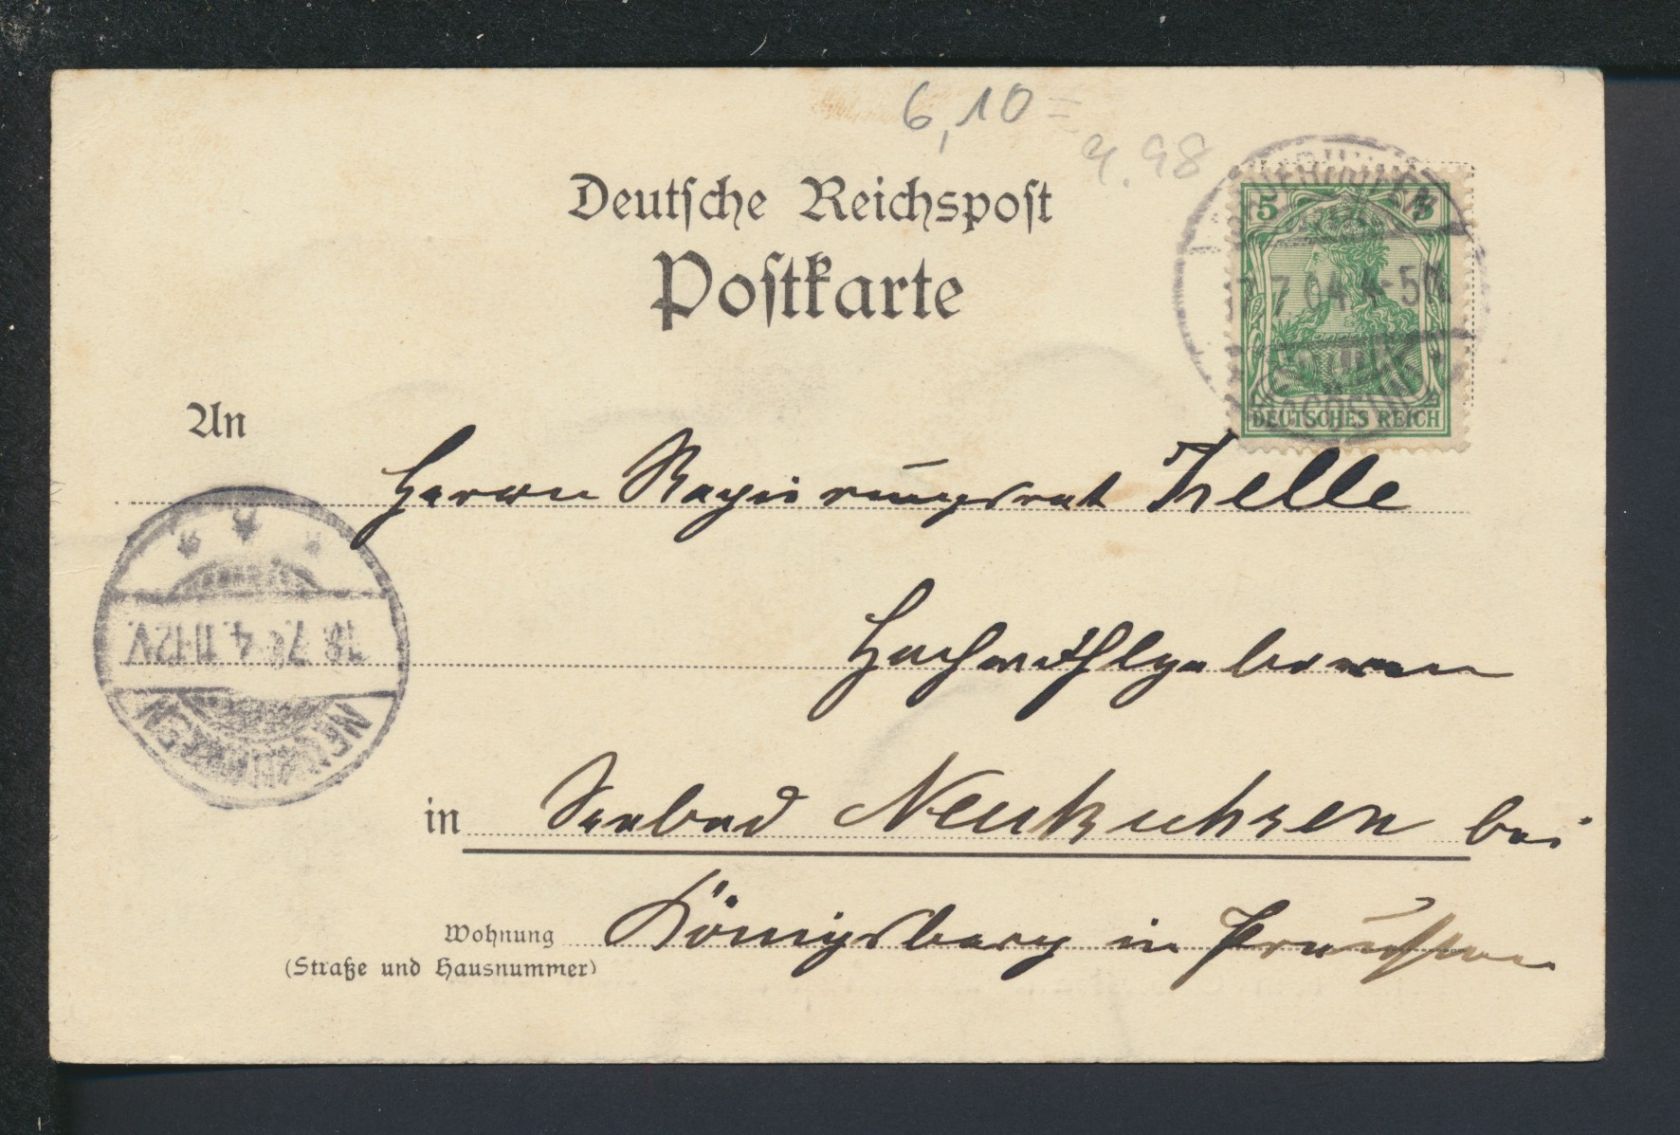 6,10=
4.98
Deutsche Reichspost
Postkarte
5 5
7.04 4-5N.
DEUTSCHES REICH
An
Herrn Regierungsrat Zelle
Hochwohlgeboren
18.7.04.11-12V.
NEUKUHREN
in Seebad Neukuhren bei
Wohnung Königsberg in Preußen
(Straße und Hausnummer)